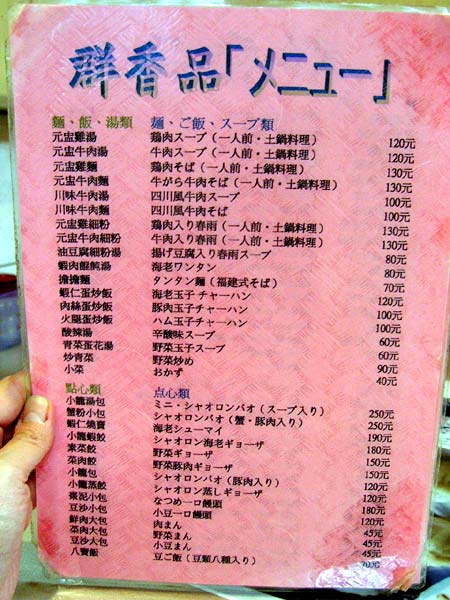 群香品「メニュー」
麵、飯、湯類 麵、ご飯、スープ類
元盅雞湯 鶏肉スープ(一人前・土鍋料理) 120元
元盅牛肉湯 牛肉スープ(一人前・土鍋料理) 120元
元盅雞麵 鶏肉そば(一人前・土鍋料理) 130元
元盅牛肉麵 牛がら牛肉そば(一人前・土鍋料理) 130元
川味牛肉湯 四川風牛肉スープ 100元
川味牛肉麵 四川風牛肉そば 100元
元盅雞細粉 鶏肉入り春雨(一人前・土鍋料理) 130元
元盅牛肉細粉 牛肉入り春雨(一人前・土鍋料理) 130元
油豆腐細粉湯 揚げ豆腐入り春雨スープ 80元
蝦肉餛飩湯 海老ワンタン 80元
擔擔麵 タンタン麵(福建式そば) 70元
蝦仁蛋炒飯 海老玉子チャーハン 120元
肉絲蛋炒飯 豚肉玉子チャーハン 100元
火腿蛋炒飯 ハム玉子チャーハン 100元
酸辣湯 辛酸味スープ 60元
青菜蛋花湯 野菜玉子スープ 60元
炒青菜 野菜炒め 90元
小菜 おかず 40元
點心類 点心類
小籠湯包 ミニ・シャオロンパオ(スープ入り) 250元
蟹粉小包 シャオロンパオ(蟹・豚肉入り) 250元
蝦仁燒賣 海老シューマイ 190元
小籠蝦餃 シャオロン海老ギョーザ 180元
素菜餃 野菜ギョーザ 150元
菜肉餃 野菜豚肉ギョーザ 150元
小籠包 シャオロンパオ(豚肉入り) 120元
小籠蒸餃 シャオロン蒸しギョーザ 120元
棗泥小包 なつめ一口饅頭 180元
豆沙小包 小豆一口饅頭 120元
鮮肉大包 肉まん 45元
菜肉大包 野菜まん 45元
豆沙大包 小豆まん 45元
八寶飯 豆ご飯(豆類八種入り) 70元